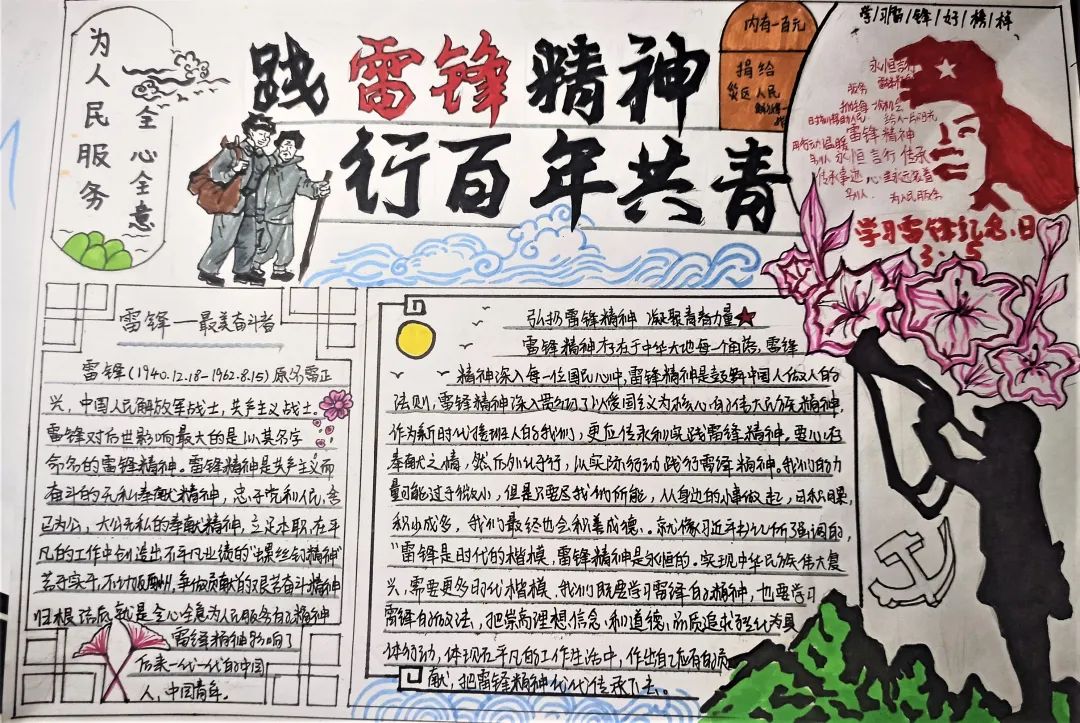 为人民服务
全心全意
践雷锋精神
行百年共青
内有一百元
捐给
灾区人民
学习雷锋好榜样
永恒言行
雷锋精神
永恒言行 传承
为人民服务
学习雷锋纪念日
3.5
雷锋—最美奋斗者
雷锋(1940.12.18-1962.8.15)原名雷正
兴,中国人民解放军战士,共产主义战士。
雷锋对后世影响最大的是以其名字
命名的雷锋精神。雷锋精神是共产主义而
奋斗的无私奉献精神,忠于党和人民,舍
己为公,大公无私的奉献精神,立足本职,在平
凡的工作中创造出不平凡业绩的"螺丝钉精神"
苦干实干,不计报酬,争做贡献的艰苦奋斗精神
归根结底就是全心全意为人民服务的精神
雷锋精神影响了
后来一代一代的中国
人,中国青年。
弘扬雷锋精神 凝聚青春力量
雷锋精神存在于中华大地每一个角落,雷锋
精神深入每一位国民心中,雷锋精神是鼓舞中国人做人的
法则,雷锋精神深入贯彻了以爱国主义为核心的伟大民族精神,
作为新时代接班人的我们,更应传承和实践雷锋精神。要心存
奉献之情,然后外化于行,以实际行动践行雷锋精神。我们的力
量可能过于微小,但是只要尽我们所能,从身边的小事做起,日积月累
积小成多,我们最终也会积善成德。就像习近平书记所强调的
"雷锋是时代的楷模,雷锋精神是永恒的。实现中华民族伟大复
兴,需要更多时代楷模,我们既要学习雷锋的精神,也要学习
雷锋的做法,把崇高理想信念和道德品质追求转化为具
体行动,体现在平凡的工作生活中,作出自己应有的贡
献,把雷锋精神代代传承下去。